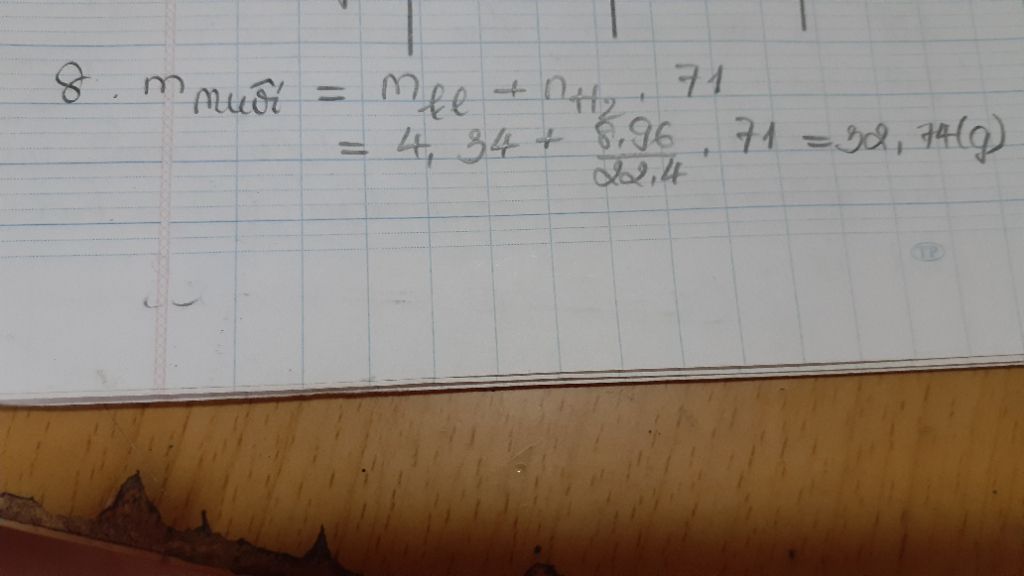 8. m muối = m kl + n H2 . 71
= 4,34 + 8,96/22,4 . 71 = 32,74(g)